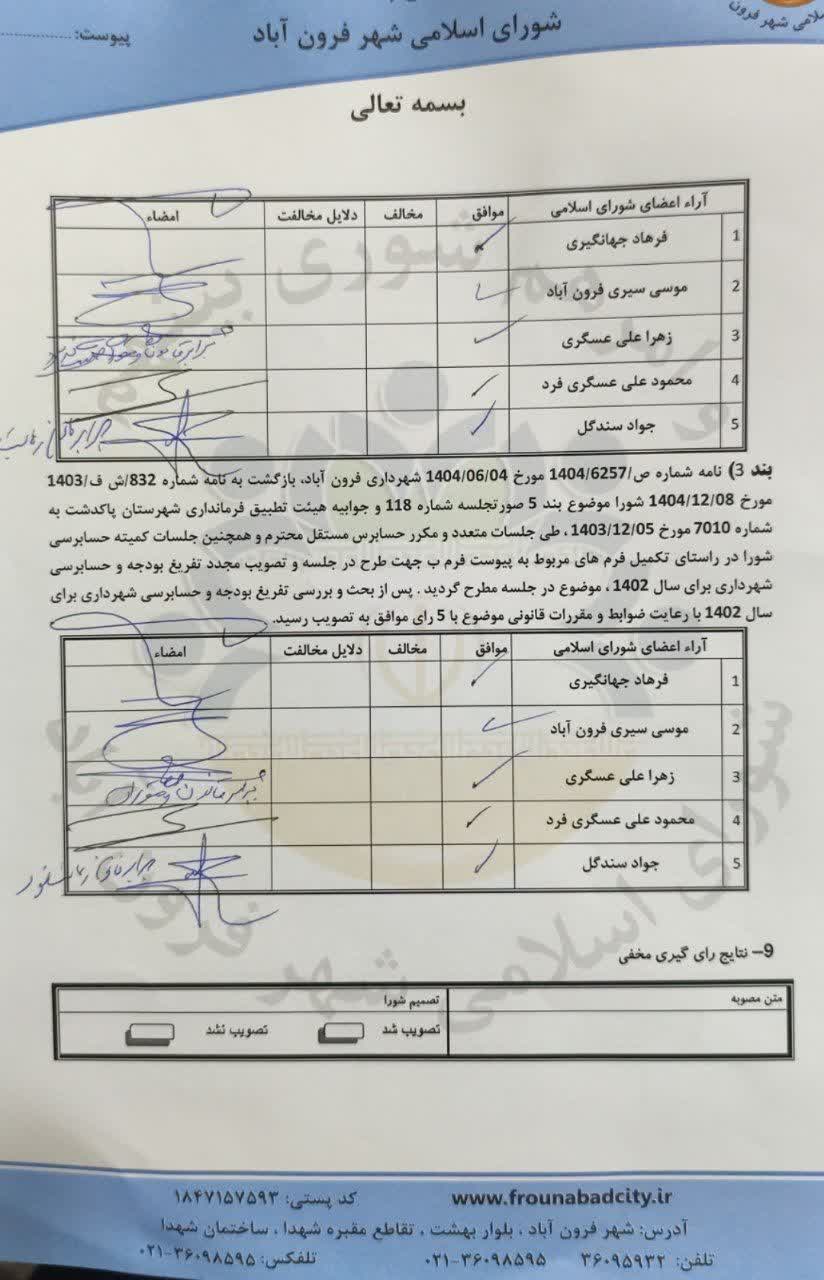 شورای اسلامی شهر فرون آباد
پیوست:
بسمه تعالی
آراء اعضای شورای اسلامی موافق مخالف دلایل مخالفت امضاء
1 فرهاد جهانگیری
2 موسی سیری فرون آباد
3 زهرا علی عسگری
4 محمود علی عسگری فرد
5 جواد سندگل
بند 3) نامه شماره ص/1404/6257 مورخ 1404/06/04 شهرداری فرون آباد، بازگشت به نامه شماره 832/ش ف/1403
مورخ 1404/12/08 شورا موضوع بند 5 صورتجلسه شماره 118 و جوابیه هیئت تطبیق فرمانداری شهرستان پاکدشت به
شماره 7010 مورخ 1403/12/05 ، طی جلسات متعدد و مکرر حسابرس مستقل محترم و همچنین جلسات کمیته حسابرسی
شورا در راستای تکمیل فرم های مربوط به پیوست فرم ب جهت طرح در جلسه و تصویب مجدد تفریغ بودجه و حسابرسی
شهرداری برای سال 1402 ، موضوع در جلسه مطرح گردید . پس از بحث و بررسی تفریغ بودجه و حسابرسی شهرداری برای
سال 1402 با رعایت ضوابط و مقررات قانونی موضوع با 5 رای موافق به تصویب رسید.
آراء اعضای شورای اسلامی موافق مخالف دلایل مخالفت امضاء
1 فرهاد جهانگیری
2 موسی سیری فرون آباد
3 زهرا علی عسگری
4 محمود علی عسگری فرد
5 جواد سندگل
9– نتایج رای گیری مخفی
متن مصوبه تصمیم شورا
تصویب شد تصویب نشد
www.frounabadcity.ir کد پستی: ۱۸۴۷۱۵۷۵۹۳
آدرس: شهر فرون آباد ، بلوار بهشت ، تقاطع مقبره شهدا ، ساختمان شهدا
تلفن: ۳۶۰۹۵۹۳۲ ۰۲۱-۳۶۰۹۸۵۹۵ تلفکس: ۰۲۱-۳۶۰۹۸۵۹۵